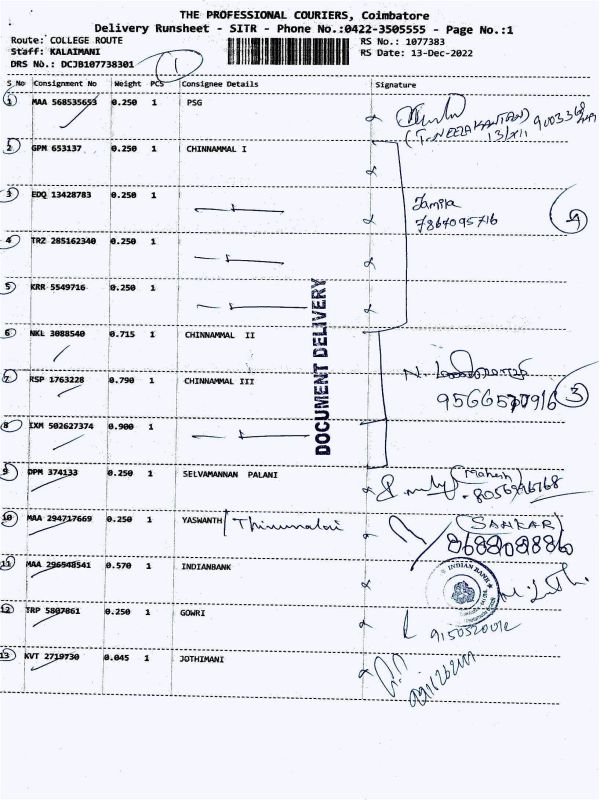 THE PROFESSIONAL COURIERS, Coimbatore
Delivery Runsheet - SITR - Phone No.:0422-3505555 - Page No.:1
Route: COLLEGE ROUTE
RS No.: 1077383
Staff: KALAIMANI
RS Date: 13-Dec-2022
DRS No.: DCJB107738301
1
S No Consignment No Weight PCS Consignee Details Signature
1 MAA 568535653 0.250 1 PSG
(T. NEELAKANTAN)
13/XII
2 GPM 653137 0.250 1 CHINNAMMAL I
3 EDQ 13428783 0.250 1
Jamila
7867095716
4
4 TRZ 285162340 0.250 1
5 KRR 5549716 0.250 1
DOCUMENT DELIVERY
6 NKL 3088540 0.715 1 CHINNAMMAL II
7 RSP 1763228 0.790 1 CHINNAMMAL III
3
8 IXM 502627374 0.900 1
9 DPM 374133 0.250 1 SELVAMANNAN PALANI
(Mahesh)
10 MAA 294717669 0.250 1 YASWANTH / Thirumalai
(SANKAR)
11 MAA 296548541 0.570 1 INDIANBANK
INDIAN BANK
12 TRP 5807861 0.250 1 GOWRI
13 KVT 2719730 0.045 1 JOTHIMANI